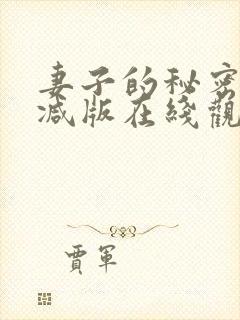 妻子的秘密
减版在綫觀
賈軍